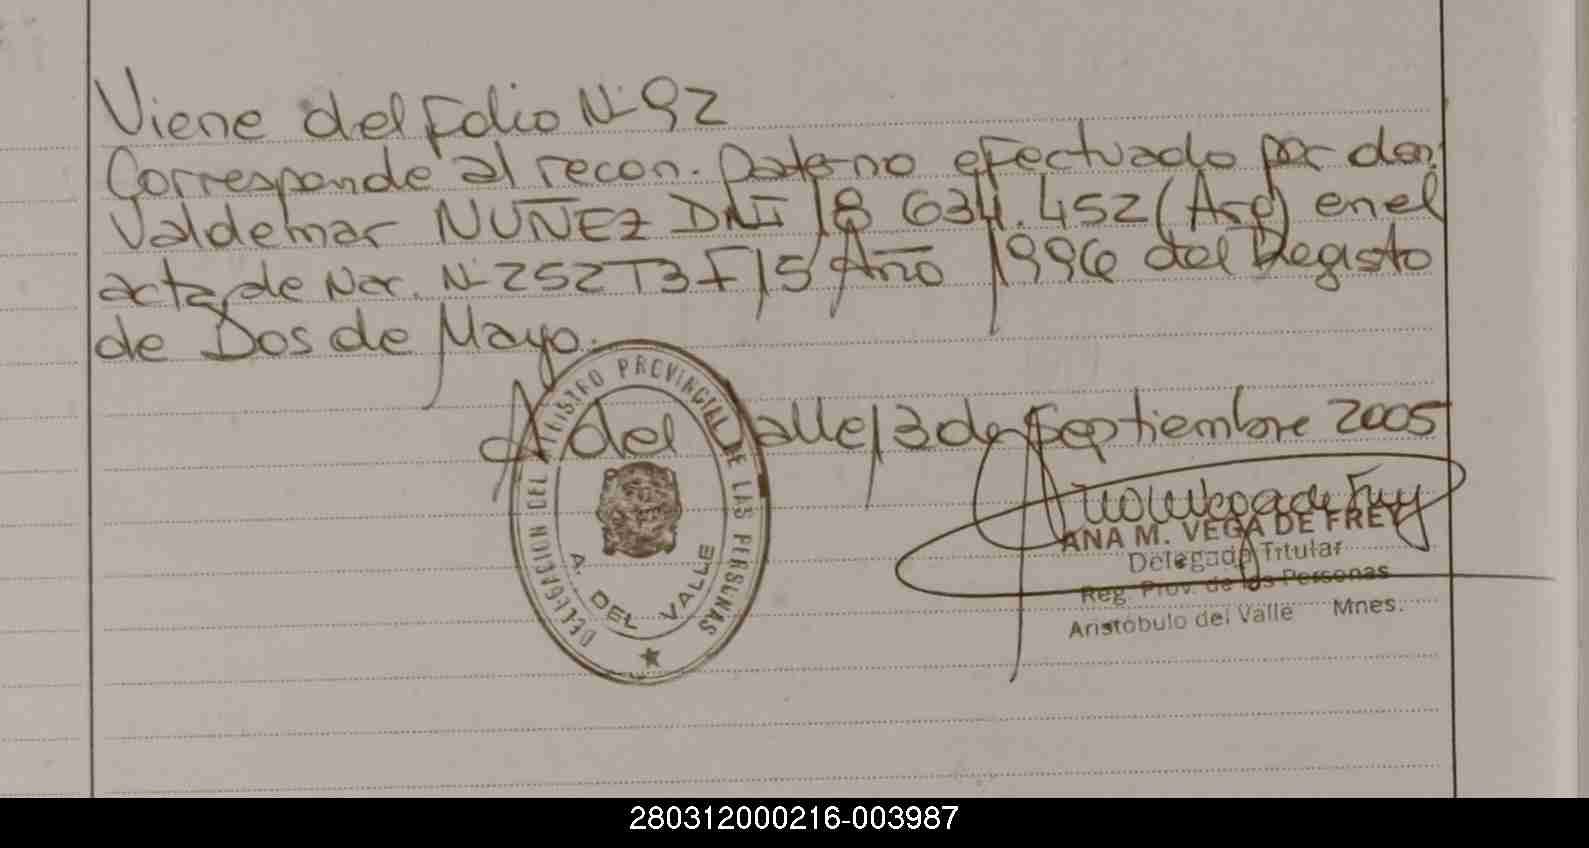 Viene del folio Nº 92
Corresponde al recon. paterno efectuado por don.
Valdemar NUÑEZ DNI 18 634.452 (Arg) en el
acta de Nac. Nº 252 T3 F 15 Año 1996 del Registo
de Dos de Mayo.
A del Valle 13 de Septiembre 2005
DELEGACION DEL REGISTRO PROVINCIAL DE LAS PERSONAS
A. DEL VALLE
ANA M. VEGA DE FREY
Delegada Titular
Reg. Prov. de las Personas
Aristóbulo del Valle Mnes.
280312000216-003987